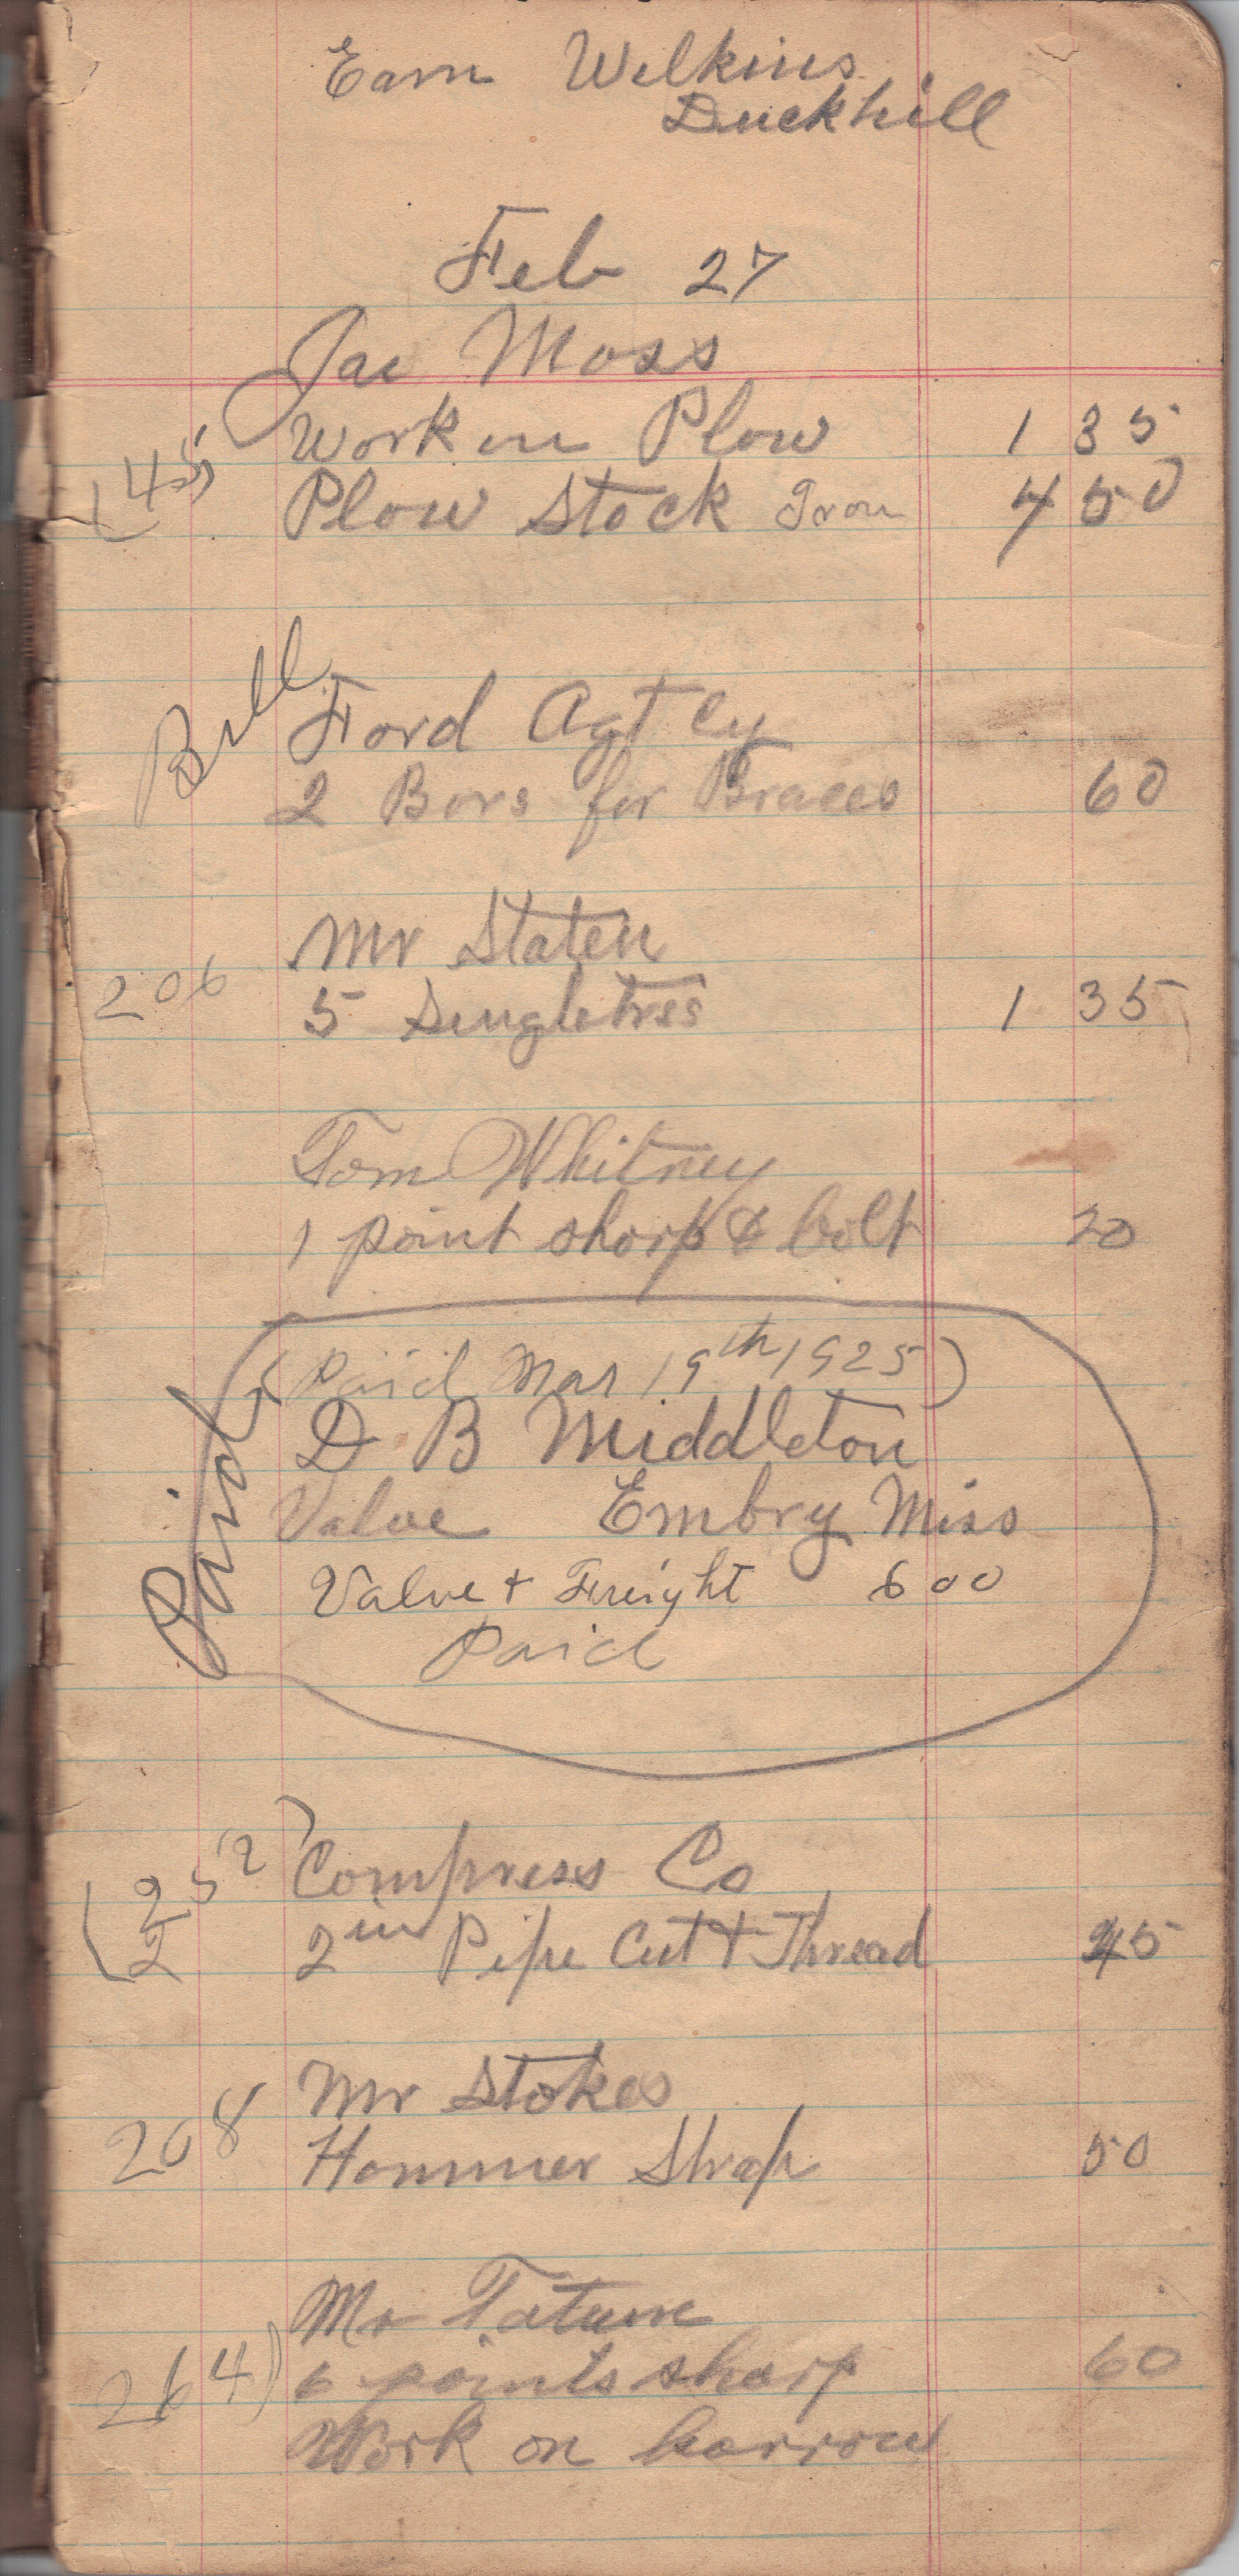 Earn Wilkins
Duckhill
Feb 27
Jac Moss
Work on Plow 1 35
(145) Plow Stock Iron 4 50
Bill
Ford Agt cy
2 Bars for Braces 60
Mr Staten
206 5 Singletres 1 35
Tom Whitney
1 point sharp & bolt 20
(Paid Mar 19th 1925)
D B Middleton
Paid
Valve Embry Miss
Valve + Freight 6 00
Paid
(252) Compress Co
2 2in Pipe Cut + Thread 45
Mr Stokes
208 Hammer Strap 50
Mr Tatum
264) 6 points sharp 60
Work on harrow